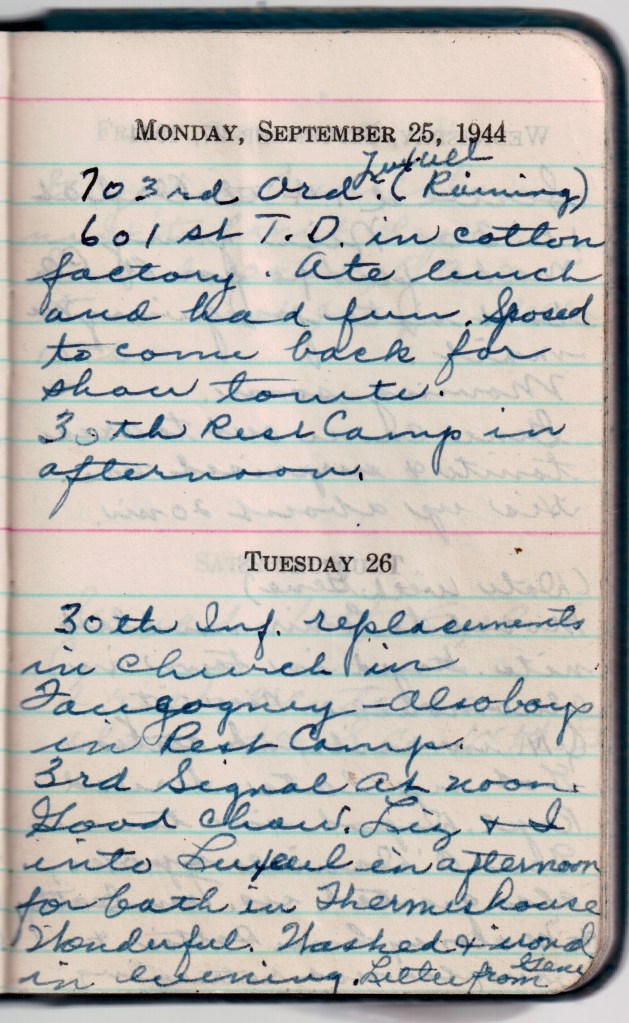 MONDAY, SEPTEMBER 25, 1944
Luxuel
703rd Ord. (Raining)
601st T.D. in cotton
factory. Ate lunch
and had fun. Sposed
to come back for
show tonite.
30th Rest Camp in
afternoon.
TUESDAY 26
30th Inf. replacements
in church in
Faucogney - Also boys
in Rest Camp.
3rd Signal at noon.
Good chow. Liz & I
into Luxeuil in afternoon
for bath in Thermeshouse
Wonderful. Washed & irond
in evening. Letter from Gene